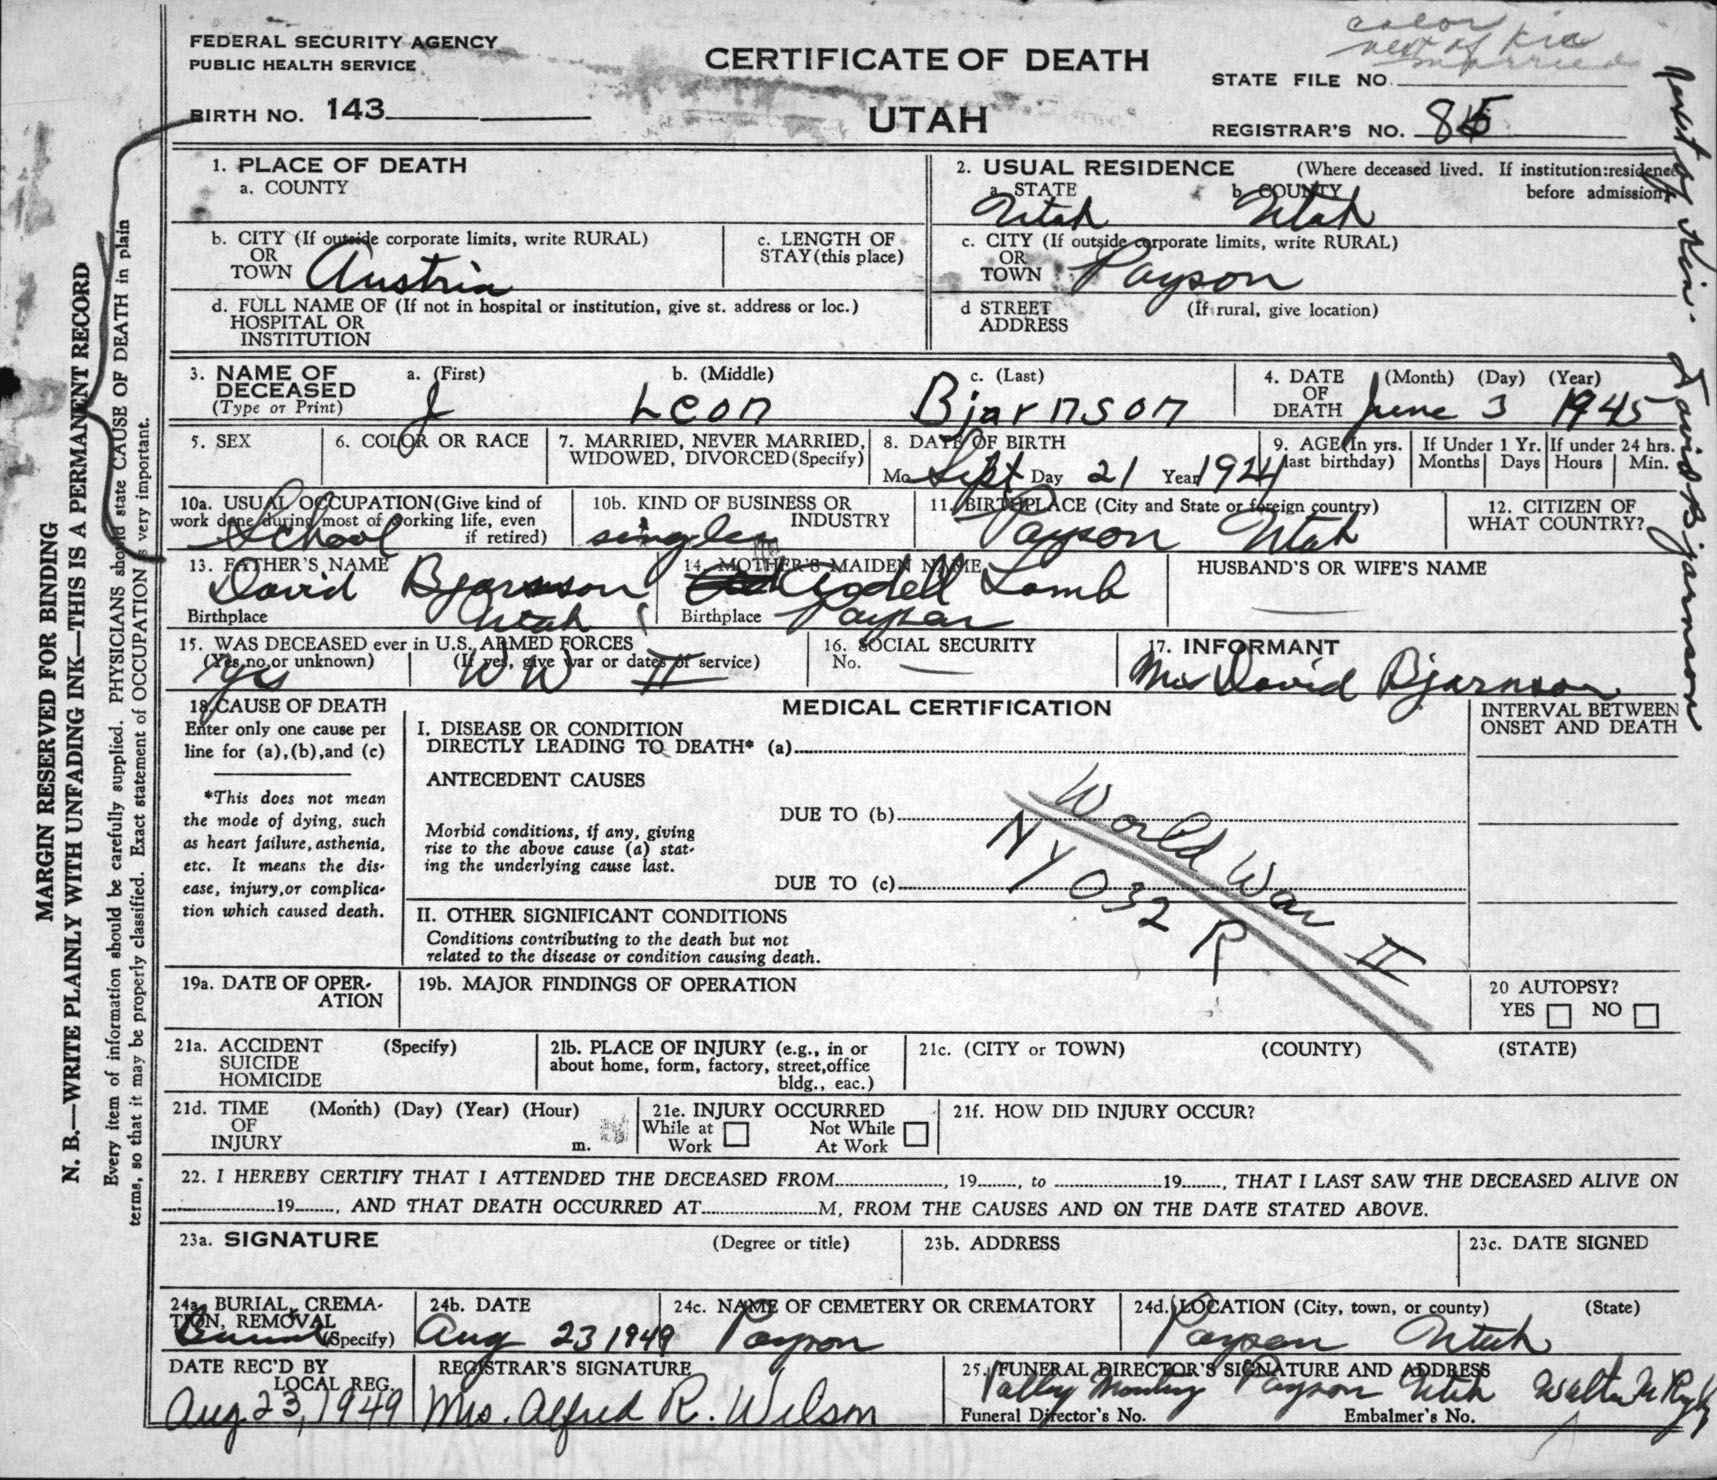 color
next of kin
married
FEDERAL SECURITY AGENCY
PUBLIC HEALTH SERVICE
CERTIFICATE OF DEATH
STATE FILE NO.
BIRTH NO. 143
UTAH
REGISTRAR'S NO. 85
1. PLACE OF DEATH
a. COUNTY
2. USUAL RESIDENCE (Where deceased lived. If institution:residence before admission)
a. STATE Utah b. COUNTY Utah
b. CITY (If outside corporate limits, write RURAL)
OR
TOWN Austria
c. LENGTH OF
STAY (this place)
c. CITY (If outside corporate limits, write RURAL)
OR
TOWN Payson
d. FULL NAME OF (If not in hospital or institution, give st. address or loc.)
HOSPITAL OR
INSTITUTION
d STREET (If rural, give location)
ADDRESS
3. NAME OF
DECEASED
(Type or Print)
a. (First) J
b. (Middle) Leon
c. (Last) Bjarnson
4. DATE (Month) (Day) (Year)
OF
DEATH June 3 1945
5. SEX
6. COLOR OR RACE
7. MARRIED, NEVER MARRIED,
WIDOWED, DIVORCED (Specify)
8. DATE OF BIRTH
Mo Sept Day 21 Year 1924
9. AGE (In yrs.
last birthday)
If Under 1 Yr.
Months Days
If under 24 hrs.
Hours Min.
10a. USUAL OCCUPATION (Give kind of
work done during most of working life, even
if retired)
School
10b. KIND OF BUSINESS OR
INDUSTRY
single
11. BIRTHPLACE (City and State or foreign country)
Payson Utah
12. CITIZEN OF
WHAT COUNTRY?
13. FATHER'S NAME
David Bjarnson
Birthplace Utah
14. MOTHER'S MAIDEN NAME
Lamb
Birthplace Payson
HUSBAND'S OR WIFE'S NAME
15. WAS DECEASED ever in U.S. ARMED FORCES
(Yes, no, or unknown) (If yes, give war or dates of service)
Yes WW II
16. SOCIAL SECURITY
No.
17. INFORMANT
Mrs David Bjarnson
18. CAUSE OF DEATH
Enter only one cause per
line for (a),(b),and (c)
*This does not mean
the mode of dying, such
as heart failure, asthenia,
etc. It means the dis-
ease, injury, or complica-
tion which caused death.
MEDICAL CERTIFICATION
I. DISEASE OR CONDITION
DIRECTLY LEADING TO DEATH* (a)
ANTECEDENT CAUSES
DUE TO (b)
Morbid conditions, if any, giving
rise to the above cause (a) stat-
ing the underlying cause last.
DUE TO (c)
World War II
NY 032 R
INTERVAL BETWEEN
ONSET AND DEATH
II. OTHER SIGNIFICANT CONDITIONS
Conditions contributing to the death but not
related to the disease or condition causing death.
19a. DATE OF OPER-
ATION
19b. MAJOR FINDINGS OF OPERATION
20 AUTOPSY?
YES NO
21a. ACCIDENT (Specify)
SUICIDE
HOMICIDE
21b. PLACE OF INJURY (e.g., in or
about home, form, factory, street, office
bldg., eac.)
21c. (CITY or TOWN) (COUNTY) (STATE)
21d. TIME (Month) (Day) (Year) (Hour)
OF
INJURY m.
21e. INJURY OCCURRED
While at Work
Not While At Work
21f. HOW DID INJURY OCCUR?
22. I HEREBY CERTIFY THAT I ATTENDED THE DECEASED FROM , 19 , to 19 , THAT I LAST SAW THE DECEASED ALIVE ON
19 , AND THAT DEATH OCCURRED AT M, FROM THE CAUSES AND ON THE DATE STATED ABOVE.
23a. SIGNATURE (Degree or title)
23b. ADDRESS
23c. DATE SIGNED
24a. BURIAL, CREMA-
TION, REMOVAL
(Specify) Burial
24b. DATE
Aug 23 1949
24c. NAME OF CEMETERY OR CREMATORY
Payson
24d. LOCATION (City, town, or county) (State)
Payson Utah
DATE REC'D BY
LOCAL REG.
Aug 23, 1949
REGISTRAR'S SIGNATURE
Mrs. Alfred R. Wilson
25. FUNERAL DIRECTOR'S SIGNATURE AND ADDRESS
Valley Payson Utah Walter
Funeral Director's No. Embalmer's No.
MARGIN RESERVED FOR BINDING
N. B.—WRITE PLAINLY WITH UNFADING INK—THIS IS A PERMANENT RECORD
Every item of information should be carefully supplied. PHYSICIANS should state CAUSE OF DEATH in plain
terms, so that it may be properly classified. Exact statement of OCCUPATION is very important.
next of kin. David Bjarnson